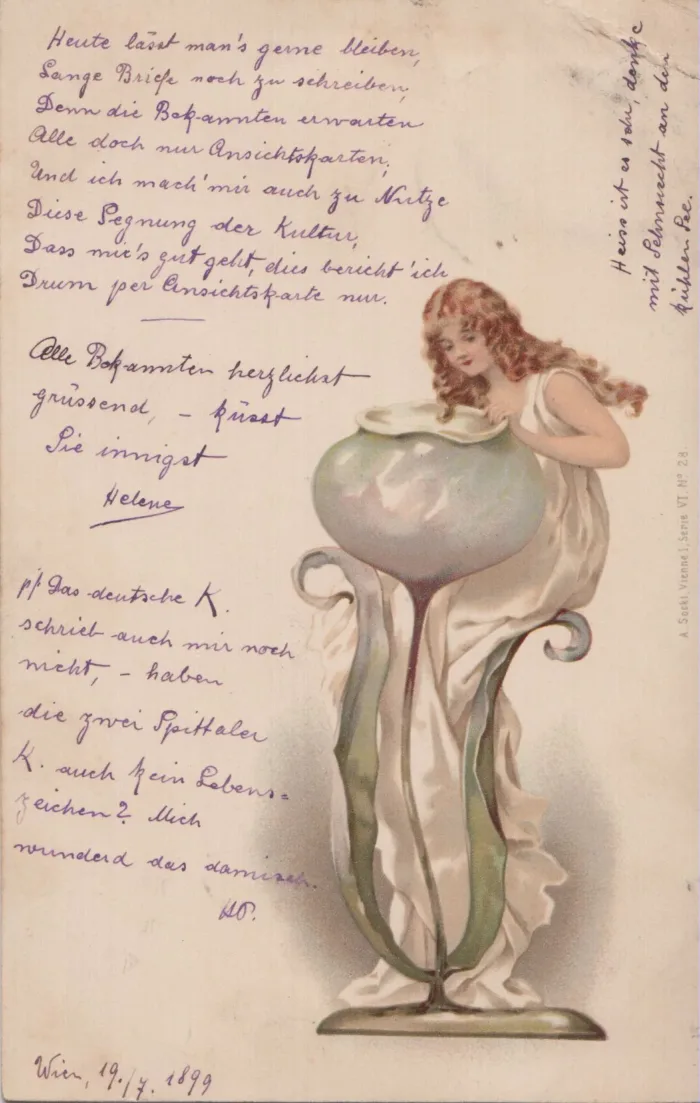 Heute lässt man's gerne bleiben,
Lange Briefe noch zu schreiben,
Denn die Bekannten erwarten
Alle doch nur Ansichtskarten,
Und ich mach' mir auch zu Nutze
Diese Segnung der Kultur,
Dass mir's gut geht, dies bericht' ich
Drum per Ansichtskarte nur.
Alle Bekannten herzlichst
grüssend, – küsst
Sie innigst
Helene
p/ Das deutsche K.
schrieb auch mir noch
nicht, – haben
die zwei Spittaler
K. auch kein Lebens=
zeichen? Mich
wunderd das damisch.
HP.
Wien, 19./7. 1899
Heiss ist es sehr, denke
mit Sehnsucht an den
kühlen See.
A. Sockl, Vienne I, Serie VI. Nº 28.